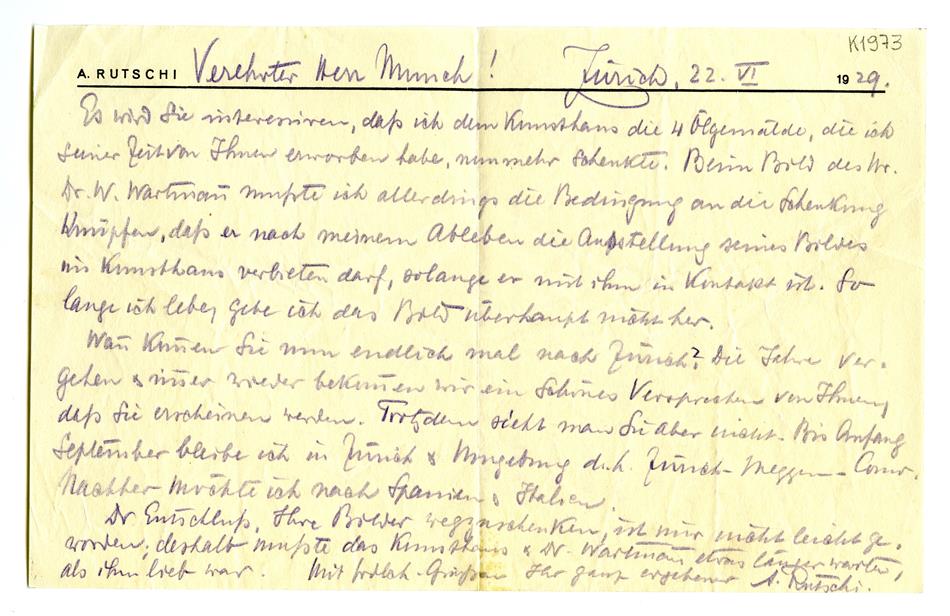 K1973
A. RUTSCHI Verehrter Herr Munch! Zürich, 22. VI 1929.
Es wird Sie interessieren, daß ich dem Kunsthaus die 4 Ölgemälde, die ich
seiner Zeit von Ihnen erworben habe, nunmehr schenkte. Beim Bild des Hr.
Dr. W. Wartmañ mußte ich allerdings die Bedingung an die Schenkung
knüpfen, daß er nach meinem Ableben die Ausstellung seines Bildes
im Kunsthaus verbieten darf, solange er mit ihm in Kontakt ist. So
lange ich lebe, gebe ich das Bild überhaupt nicht her.
Wañ kom̄en Sie nun endlich mal nach Zürich? Die Jahre ver-
gehen & im̄er wieder bekom̄en wir ein schönes Versprechen von Ihnen,
daß Sie erscheinen werden. Trotzdem sieht man Sie aber nicht. Bis Anfang
September bleibe ich in Zürich & Umgebung d.h. Zürich - Meggen - Como.
Nachher möchte ich nach Spanien & Italien.
Dr Entschluß, Ihre Bilder wegzuschenken, ist mir nicht leicht ge-
worden, deshalb mußte das Kunsthaus & Dr. Wartmañ etwas länger warten,
als ihm lieb war. Mit frdlch. Grüßen Ihr ganz ergebener A. Rütschi.